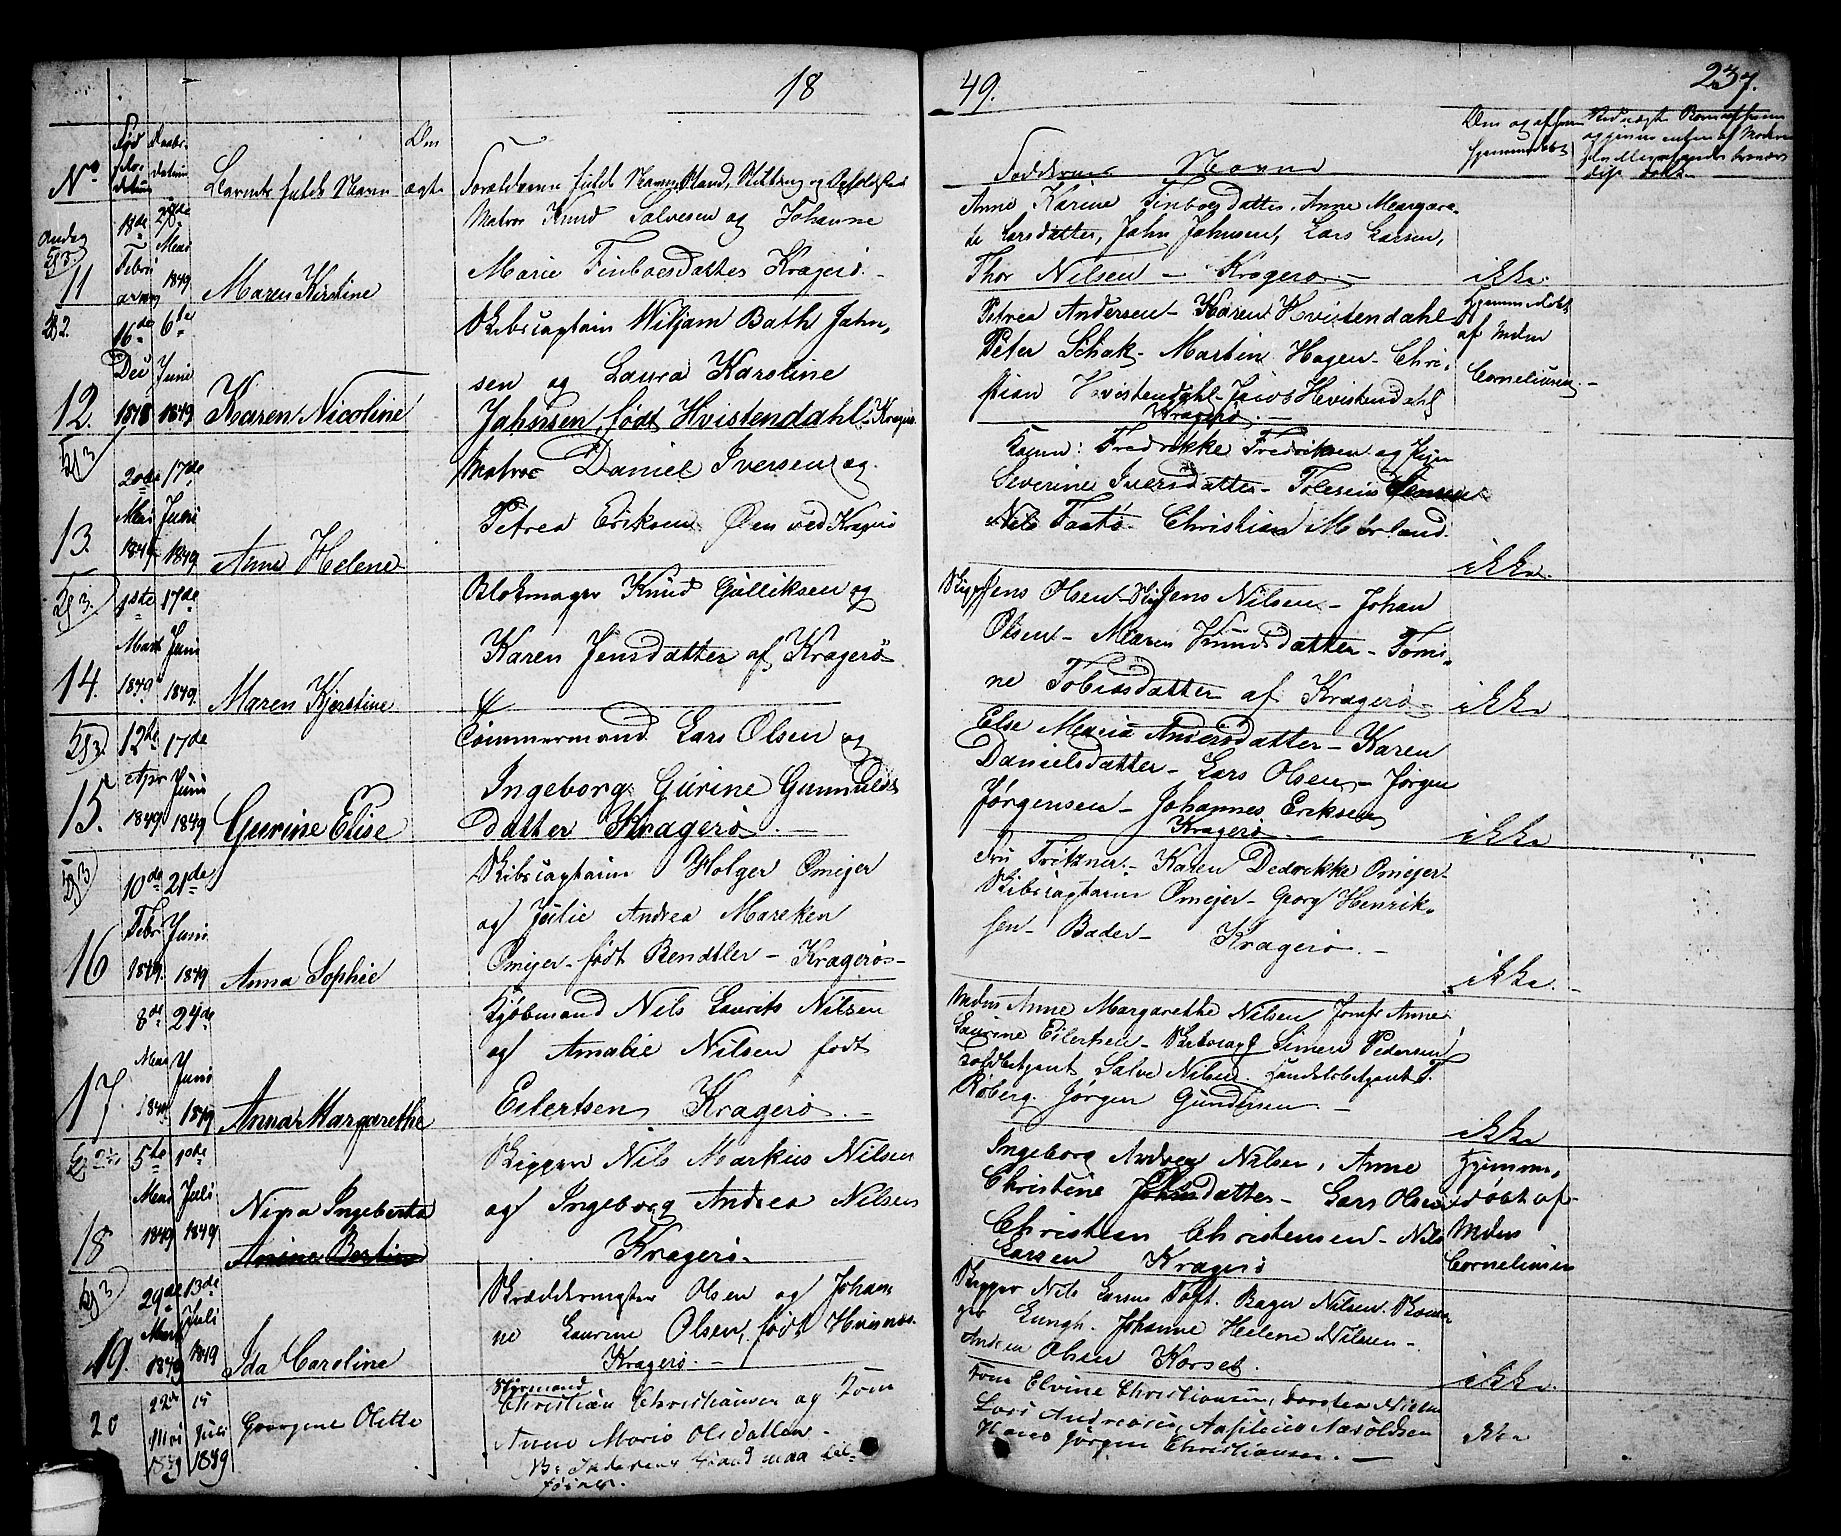 18
49.
237.
No
Barnets fulde Navn
Om
ægte
Forældrenes fulde Navne, Stand, Stilling og
Faddernes Navne
11
18de
Februar
20de
Mai
1849
Maren Kirstine
Matros Knud Salvesen og Johanne
Marie Finboesdatter Kragerø.
Anne Karine Finboesdatter, Anne Margare-
te Larsdatter, John Johnsen, Lars Larsen,
Thor Nilsen — Kragerø —
ikke
12.
16de
1848
6te
Juni
1849
Karen Nicoline
Skibscaptain Wiljam Bath Jahn,
sen og Laura Karoline
Jahnsen, født Hvistendahl - Kragerø
Petrea Andersen - Karen Hvistendahl
Peter Schak - Martin Hagen - Chri,
stian Hvistendahl - Jacob Hvistendahl
Kragerø. —
af Mdm
Corneliusen. -
13.
20de
Mai
1849
17de
Juni
1849
Anne Helene
Matros Daniel Iversen og
Petrea Eriksen Øen ved Kragerø
Fredrikke Fredriksen og
Severine Iversdatter -
Nils Taatø - Christian Mørland.
ikke.
14.
1ste
Marts
1849
17de
Juni
1849.
Maren Kjerstine
Blokmager Knud Gulliksen og
Karen Jensdatter af Kragerø
Jens Olsen - Jens Nilsen - Johan
Olsen - Maren Knudsdatter - Tomi,
ne Tobiasdatter af Kragerø -
ikke
15.
12te
Apr
1849.
17de
Juni
1849
Gurine Elise
Tømmermand Lars Olsen og
Ingeborg Gurine Gunnulds
datter Kragerø. —
Else Maria Andersdatter - Karen
Danielsdatter - Lars Olsen - Jørgen
Jørgensen - Johannes Eriksen
Kragerø
ikke
16
10de
Febr
1849.
21de
Juni
1849
Anna Sophie
Skibscaptain Holger Omejer
og Julie Andrea Mareken
Omejer - født Bendtler - Kragerø -
Karen Dedrikke Omejer
Skibscaptain Omejer - Georg Henrik,
sen - Bader - Kragerø. —
ikke. -
17
8de
24de
Juni
1849
Anna Margarethe
Kjøbmand Nils Laurits Nilsen
og Amalie Nilsen født
Eilertsen Kragerø. —
Anne Margarethe Nilsen Jomfr Anne
Laurine Eilertsen - Simen Pedersen
Salve Nilsen.
Røberg. Jørgen Gundersen. —
ikke
18
5te
Mai
1849
1ste
Juli
1849
Nina Ingeborta
Anine Bertine
Skipperen Nils Markus Nilsen
og Ingeborg Andrea Nilsen
Kragerø.
Ingeborg Andrea Nilsen, Anne
Christine Johnsdatter - Lars Olsen
Christian Christensen - Nils
Larsen Kragerø
Hjemme,
døbt af
Mdm
Corneliusen
19.
29de
Marts
1849
13de
Juli
1849
Ida Caroline
Skræddermester Olsen og Johan,
ne Laurine Olsen, født
Kragerø. —
Skipper Nils Larsen Toft. Bager Nilsen.
Lungh. Johanne Helene Nilsen -
Olsen Korset.
ikke.
20
22de
Mai
1849
15
Juli
1849
Georgine Olette
Styrmand
Christian Christiansen og Kone
Anne Marie Olsdatter -
Kone Elvine Christiansen, Torsten Nilsen
Lars Andreasen,
Hans Jørgen Christiansen. —
ikke